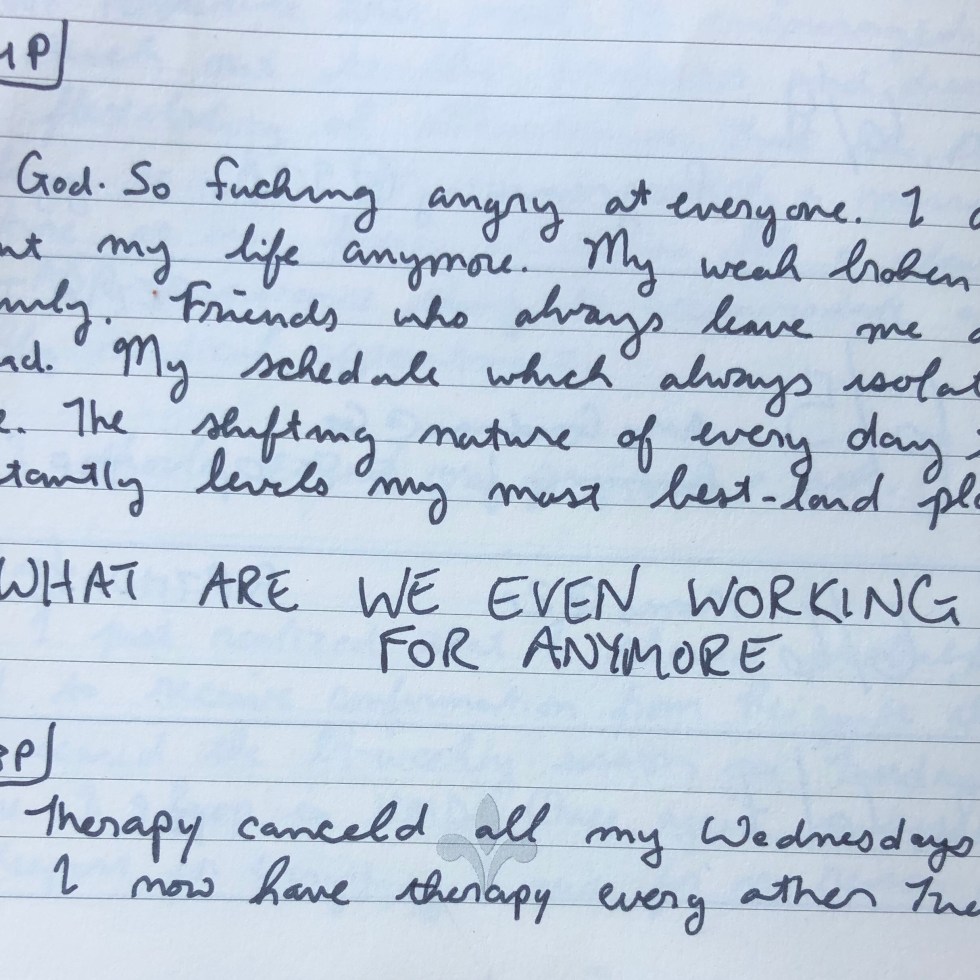 4P
God. So fucking angry at everyone. I
nt my life anymore. My weak broken
mily. Friends who always leave me
ad. My schedule which always isolat
e. The shifting nature of every day
tantly levels my most best-laid pla
WHAT ARE WE EVEN WORKING
FOR ANYMORE
3P
Therapy canceld all my Wednesdays
I now have therapy every other Tue